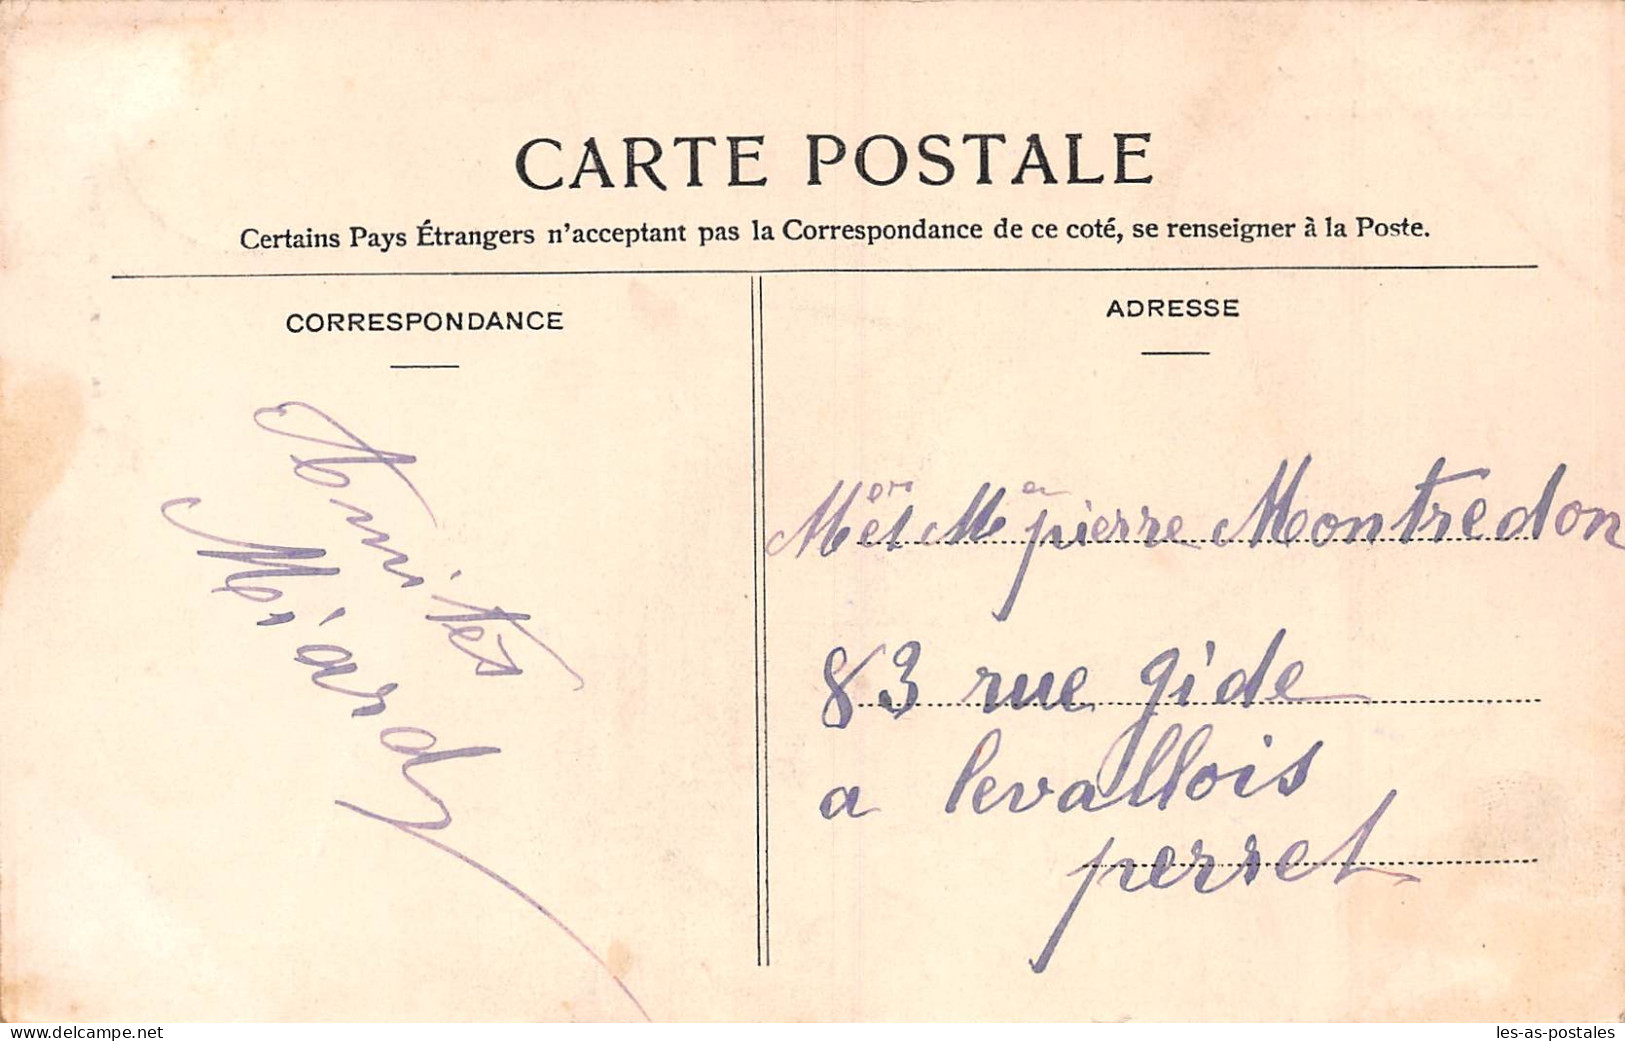 CARTE POSTALE
Certains Pays Étrangers n'acceptant pas la Correspondance de ce coté, se renseigner à la Poste.
CORRESPONDANCE
Amités
Miard
ADRESSE
Mer et Me pierre Montredon
83 rue gide
a levallois
perret
www.delcampe.net
les-as-postales